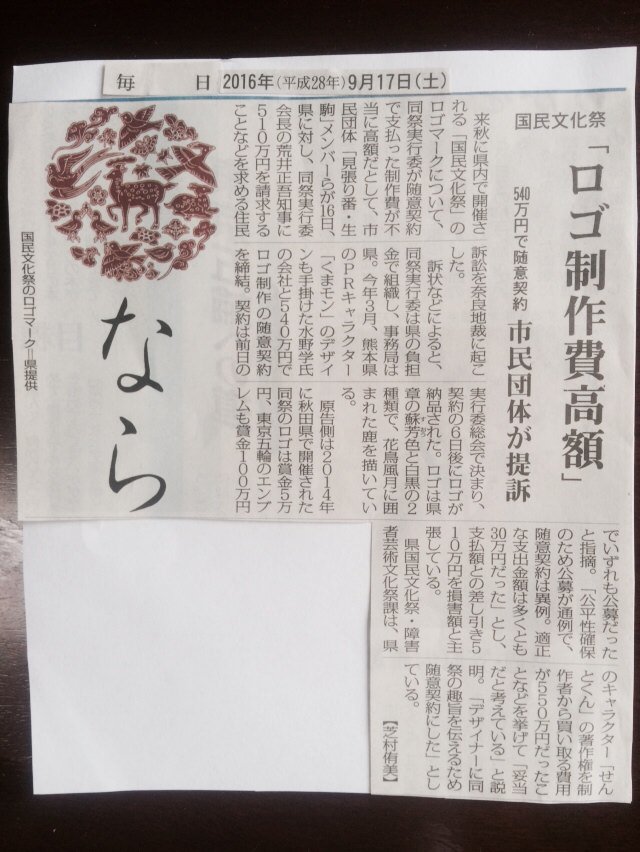 毎 日 2016年(平成28年)9月17日(土)
国民文化祭
「ロゴ制作費高額」
540万円で随意契約 市民団体が提訴
来秋に県内で開催さ
れる「国民文化祭」の
ロゴマークについて、
同祭実行委が随意契約
で支払った制作費が不
当に高額だとして、市
民団体「見張り番・生
駒」メンバーらが16日、
県に対し、同祭実行委
会長の荒井正吾知事に
510万円を請求する
ことなどを求める住民
訴訟を奈良地裁に起こ
した。
訴状などによると、
同祭実行委は県の負担
金で組織し、事務局は
県。今年3月、熊本県
のPRキャラクター
「くまモン」のデザイ
ンも手掛けた水野学氏
の会社と540万円で
ロゴ制作の随意契約
を締結。契約は前日の
実行委総会で決まり、
契約の6日後にロゴが
納品された。ロゴは県
章の蘇芳色と白黒の2
種類で、花鳥風月に囲
まれた鹿を描いてい
る。
原告側は2014年
に秋田県で開催された
同祭のロゴは賞金5万
円、東京五輪のエンブ
レムも賞金100万円
でいずれも公募だった
と指摘。「公平性確保
のため公募が通例で、
随意契約は異例。適正
な支出金額は多くとも
30万円だった」とし、
支払額との差し引き5
10万円を損害額と主
張している。
県国民文化祭・障害
者芸術文化祭課は、県
のキャラクター「せん
とくん」の著作権を制
作者から買い取る費用
が550万円だったこ
となどを挙げて「妥当
だと考えている」と説
明。「デザイナーに同
祭の趣旨を伝えるため
随意契約にした」とし
ている。
【芝村侑美】
なら
国民文化祭のロゴマーク＝県提供